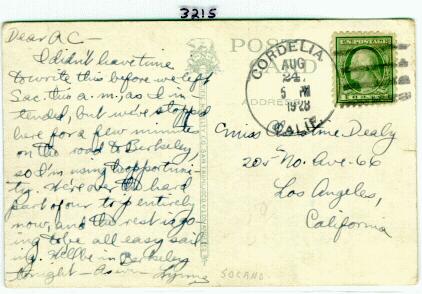 3215
Dear A C—
I didn't have time
to write this before we left
Sac. this a.m., as I in-
tended, but we've stopped
here for a few minutes
on the road to Berkeley,
so I'm using the opportuni-
ty. We're over the hard
part of our trip entirely
now, and the rest is go-
ing to be all easy sail-
ing. We'll be in Berkeley
tonight—
POST CARD
ADDRESS
CORDELIA
AUG
24
5 PM
1923
CALIF.
U.S. POSTAGE
1 CENT 1
Miss Dealy
205 No. Ave-66
Los Angeles,
California
SOLANO